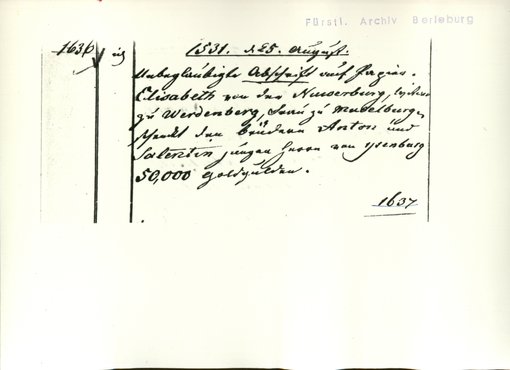 Fürstl. Archiv Berleburg
1636
1531. d 25. August.
Unbeglaubigte Abschrift auf Papier.
Elisabeth von der Neuerburg,
zu Werdenberg, Frau zu
schenkt den brüdern Anton und
Salentin jungen Herrn von Ysenburg
50,000 Goldgulden.
1637